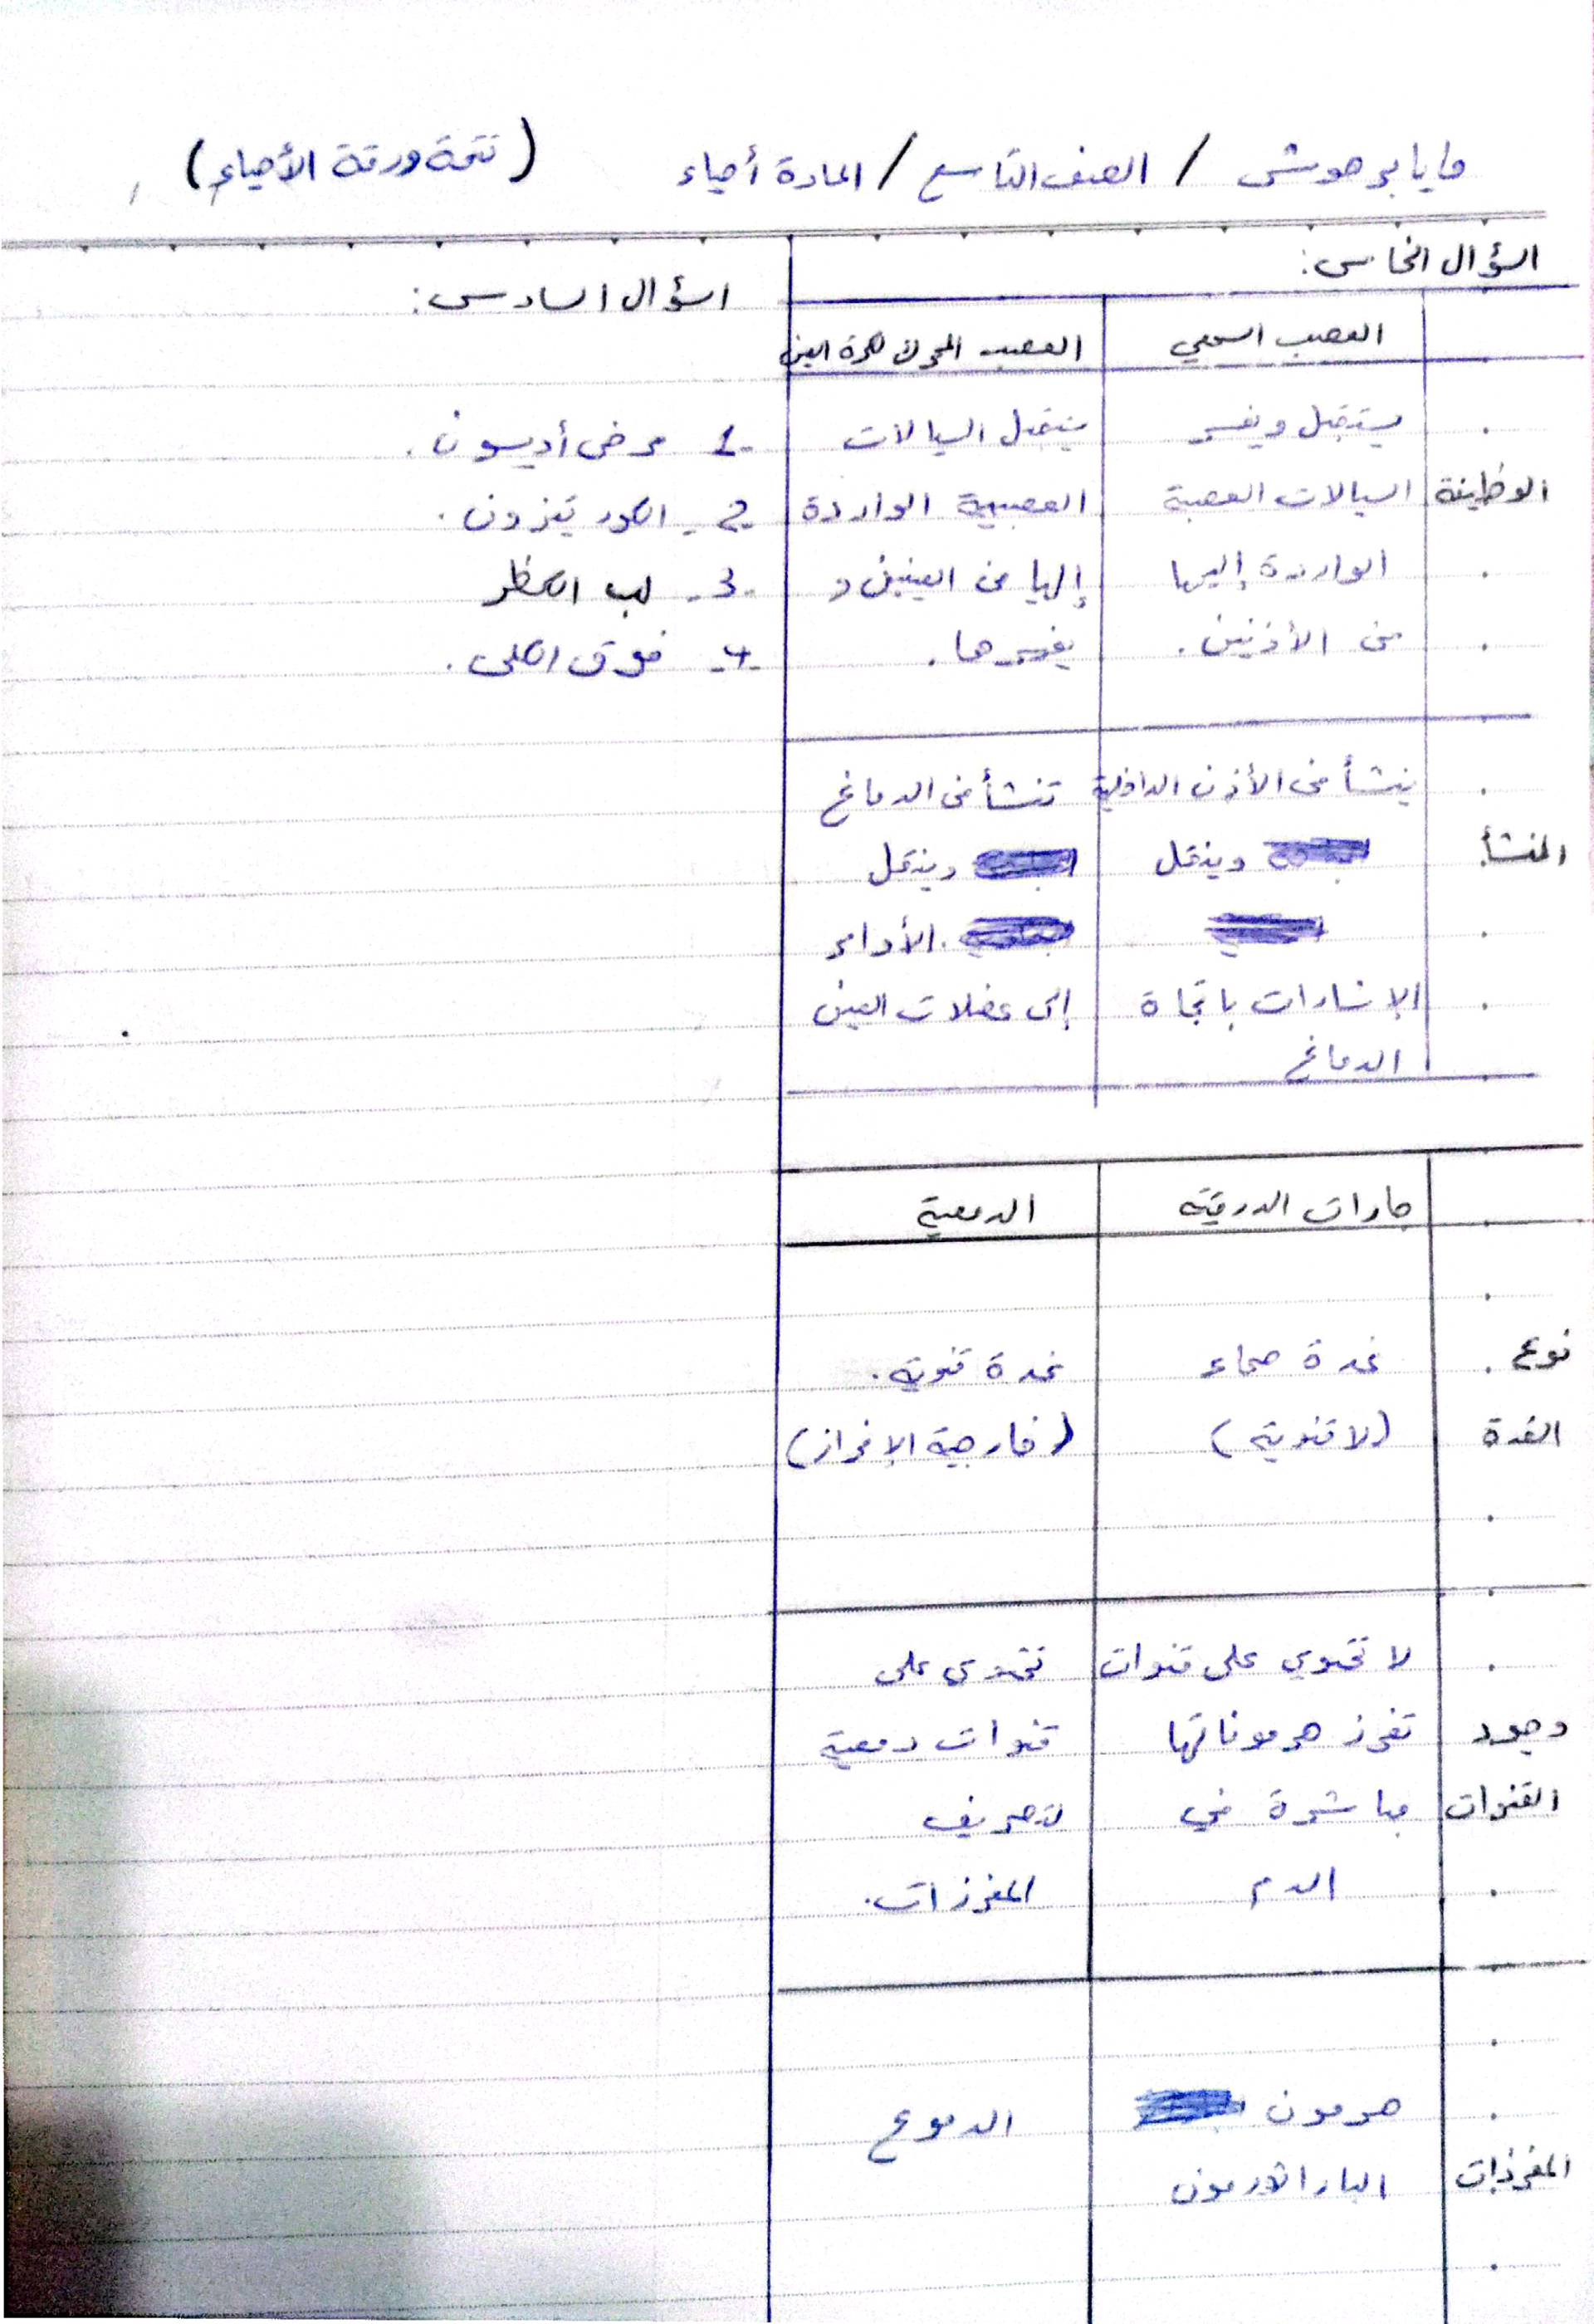 مايا برهوش / الصف التاسع / المادة أحياء (تتمة ورقة الأحياء)
السؤال الخامس:
العصب السمعي العصب المحرك لكرة العين
يستقبل ويفسر يستقبل السيالات
الوظيفة السيالات العصبية العصبية الواردة
الواردة إليها إليها من العينين و
من الأذنين. يفسرها.
ينشأ من الأذن الداخلية تنشأ من الدماغ
المنشأ وينقل وينقل
الأوامر
الإشارات باتجاة إلى عضلات العين
الدماغ
جارات الدرقية الدمعية
نوع غدة صماء غدة قنوية.
الغدة (لا قنوية) (خارجية الإفراز)
لا تحتوي على قنوات تحتوي على
وجود تفرز هرموناتها قنوات دمعية
القنوات مباشرة في لتصريف
الدم المفرزات.
هرمون الدموع
المفرزات الباراثورمون
السؤال السادس:
1- مرض أديسون.
2- الكورتيزون.
3- لب الكظر
4- فوق الكلى.